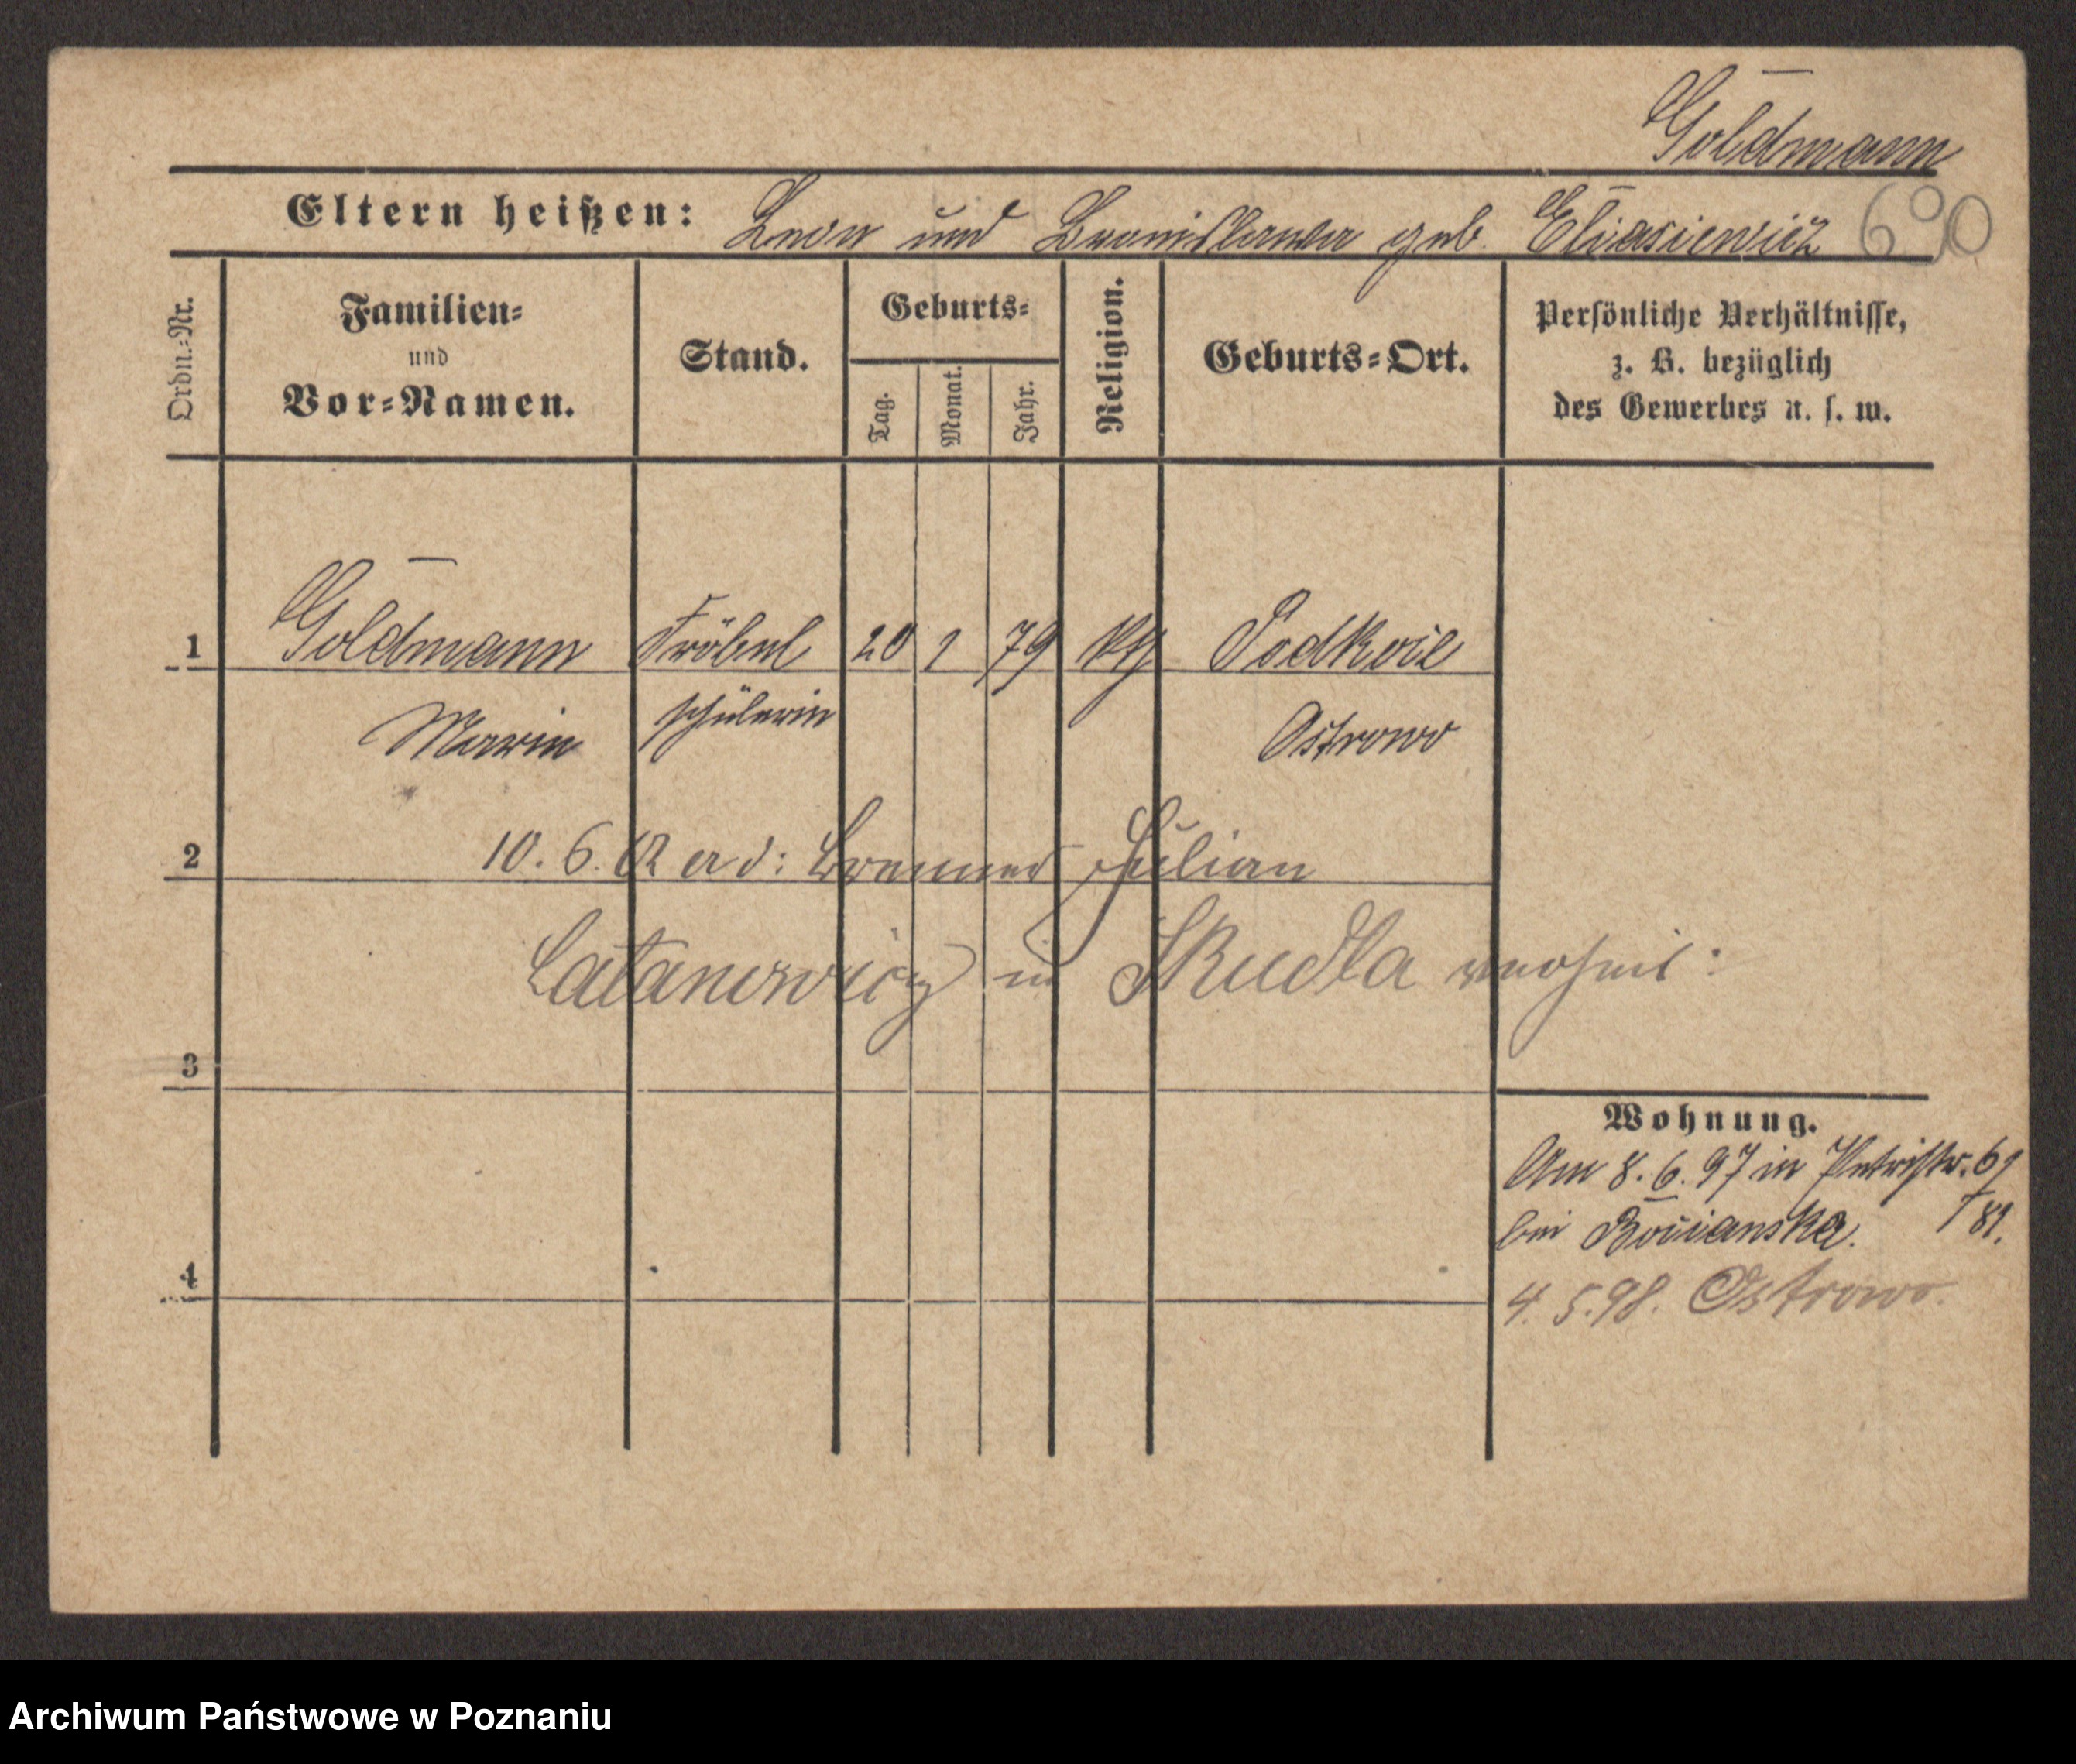 Goldmann
Eltern heißen: Leon und Bronislawa geb. Eliasiewicz 690
Ordn.-Nr.
Familien-
und
Vor-Namen.
Stand.
Geburts-
Tag.
Monat.
Jahr.
Religion.
Geburts-Ort.
Persönliche Verhältnisse,
z. B. bezüglich
des Gewerbes u. s. w.
1 Goldmann Fröbel 20 1 79 kth
Marie schülerin Ostrowo
2 10. 6. Julian
in Skudla wohnt:
3
Wohnung.
Am 8. 6. 97 in Petristr. 6
bei Bocianska. T 81.
4
4. 5. 98. Ostrowo.
Archiwum Państwowe w Poznaniu